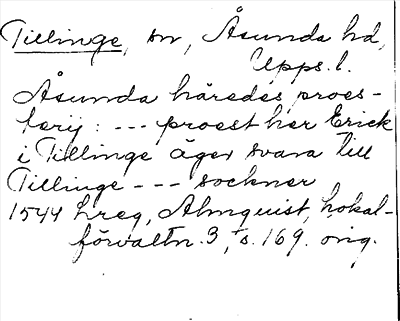 Tillinge, sn, Åsunda hd,
Upps. l.
Åsunda häredes proes-
terij: --- proest her Erick
i Tillinge äger svara till
Tillinge --- sockner
1544 Lreg, Almquist, Lokal-
förvaltn. 3, s. 169. orig.